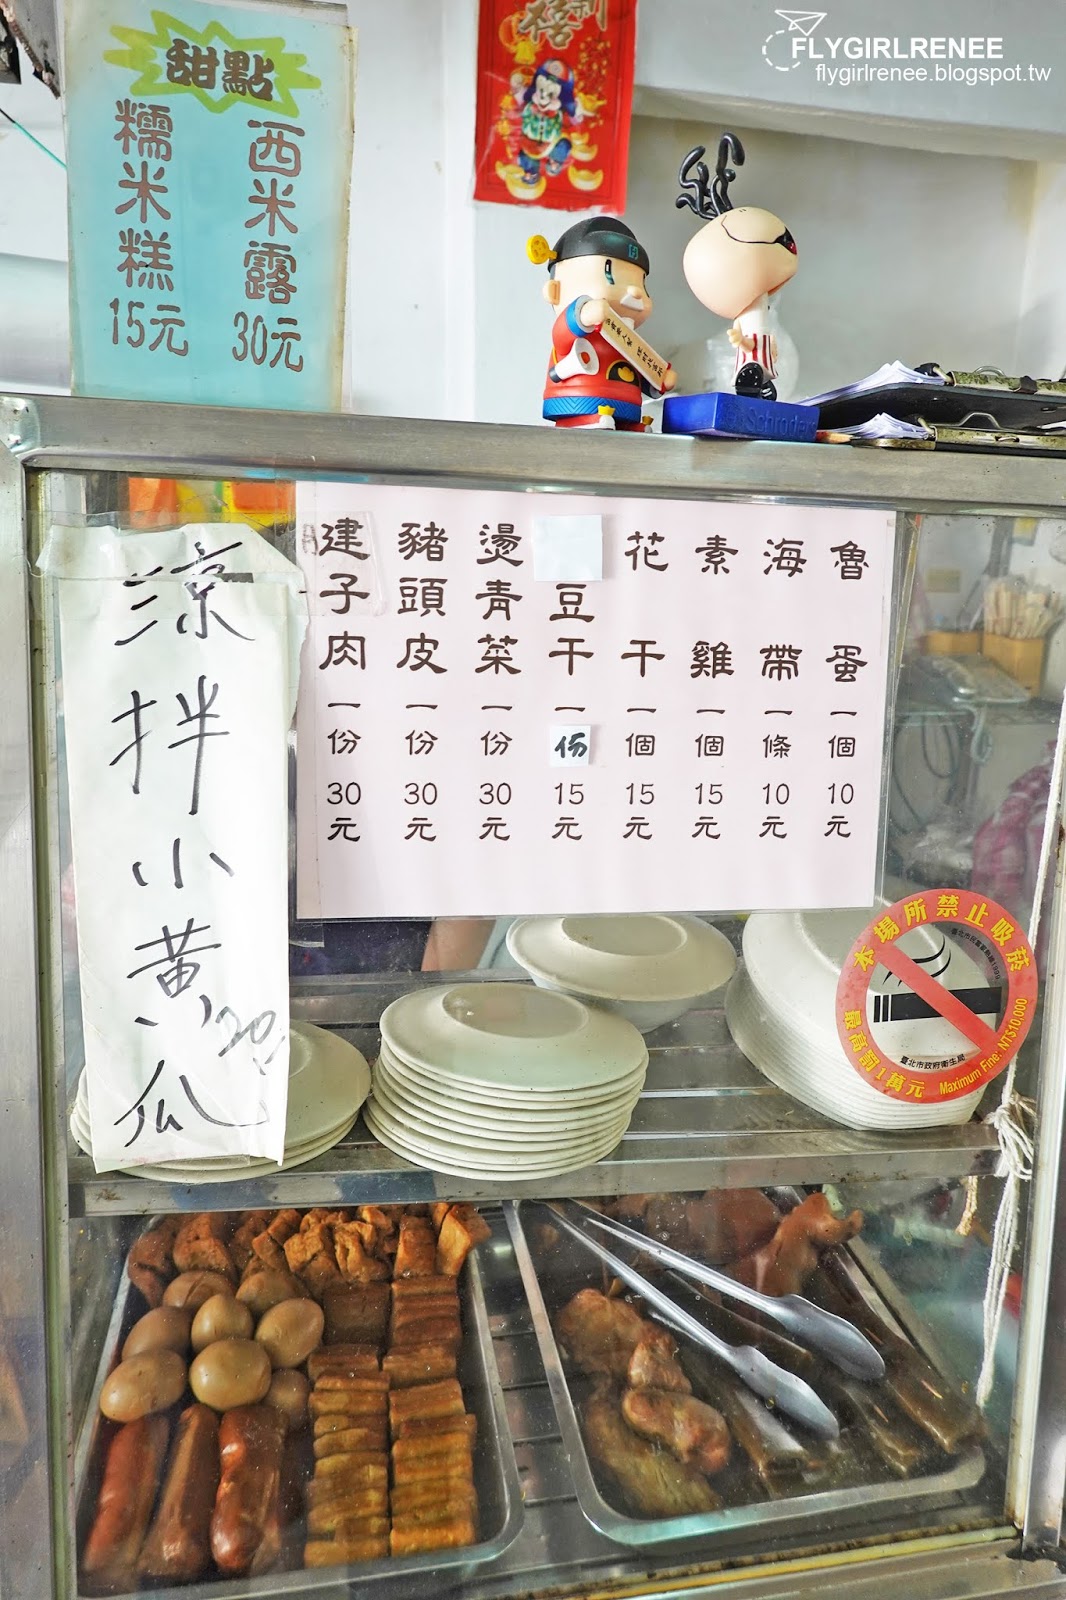 FLYGIRLRENEE
flygirlrenee.blogspot.tw
甜點
西米露 30元
糯米糕 15元
Schroder
魯蛋一個10元
海帶一條10元
素雞一個15元
花干一個15元
豆干一份15元
燙青菜一份30元
豬頭皮一份30元
建子肉一份30元
涼拌小黃瓜
20元
本場所禁止吸菸
臺北市政府衛生局
最高罰1萬元 Maximum Fine: NT$10,000